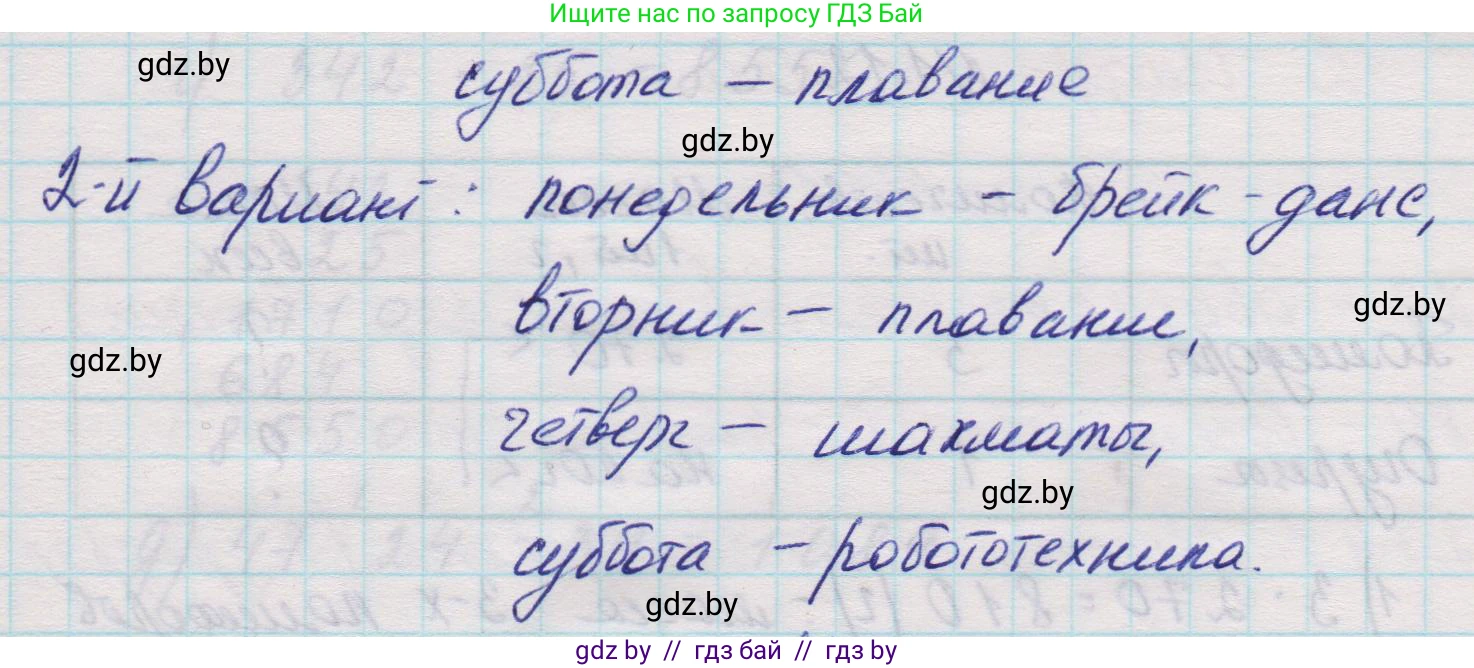 Ищите нас по запросу ГДЗ Бай
gdz.by
суббота – плавание
gdz.by
2-й вариант: понедельник – брейк-данс,
вторник – плавание,
gdz.by
gdz.by
четверг – шахматы,
gdz.by
суббота – робототехника.
gdz.by
gdz by // гдз бай // гдз by